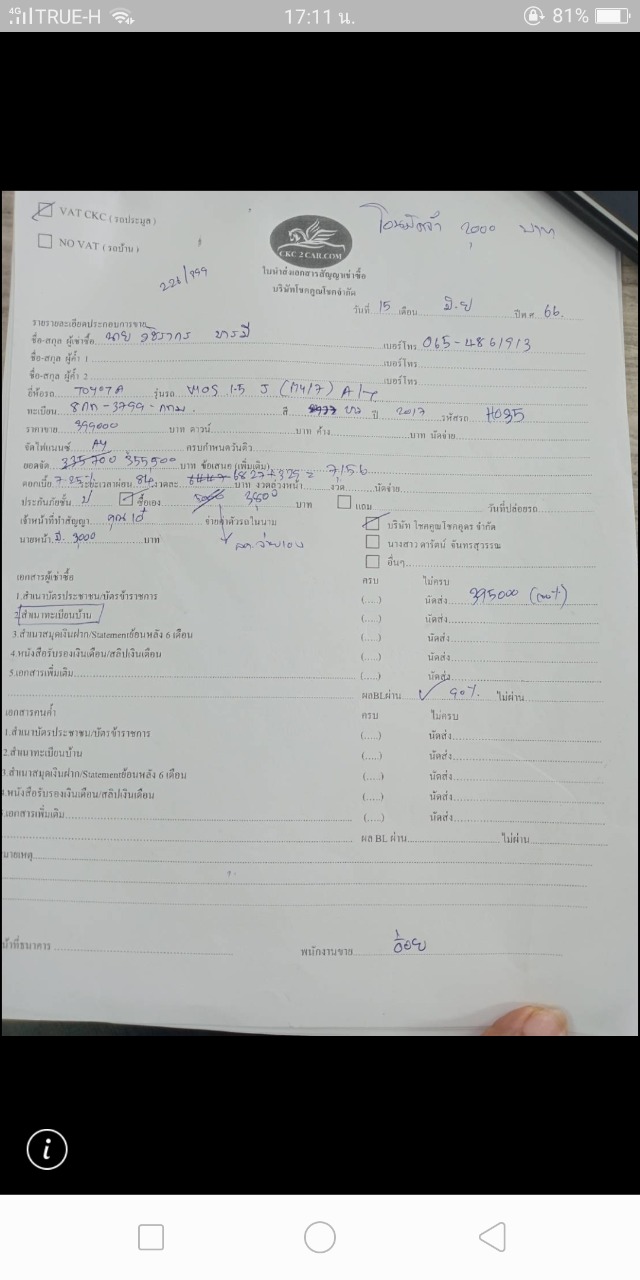 4G TRUE-H 17:11 น. 81%
VAT CKC (รถประมูล)
โอนมัดจำ 2,000 บาท
NO VAT (รถบ้าน)
CKC 2 CAR.COM
226/999
ใบนำส่งเอกสารสัญญาเช่าซื้อ
บริษัทโชคคูณโชคจำกัด
วันที่ 15 เดือน มิ.ย ปีพ.ศ. 66.
รายรายละเอียดประกอบการขาย
ชื่อ-สกุล ผู้เช่าซื้อ นาย บารมี เบอร์โทร 065-4861913
ชื่อ-สกุล ผู้ค้ำ 1 เบอร์โทร
ชื่อ-สกุล ผู้ค้ำ 2 เบอร์โทร
ยี่ห้อรถ TOYOTA รุ่นรถ VIOS 1.5 J (MY17) A/T
ทะเบียน 8กก-3799-กทม. สี ปี 2017 รหัสรถ H035
ราคาขาย 399000 บาท ดาวน์ บาท ค้าง บาท นัดจ่าย
จัดไฟแนนซ์ AY ครบกำหนดวันดิว
ยอดจัด 335700 355,500 บาท ข้อเสนอ (เพิ่มเติม)
ดอกเบี้ย 7.25% ระยะเวลาผ่อน 84 งวดละ 6447 6827+329 = 7,156 บาท งวดล่วงหน้า งวด นัดจ่าย
ประกันภัยชั้น ป ซื้อเอง 3,800 บาท แถม วันที่ปล่อยรถ
เจ้าหน้าที่ทำสัญญา จ่ายค่าตัวรถในนาม บริษัท โชคคูณโชคอุดร จำกัด
นายหน้า มี. 3,000 บาท ลค.จ่ายเอง นางสาว ดารัตน์ จันทรสุวรรณ
อื่นๆ
เอกสารผู้เช่าซื้อ ครบ ไม่ครบ
1.สำเนาบัตรประชาชน/บัตรข้าราชการ (....) นัดส่ง 395000 (100%)
2.สำเนาทะเบียนบ้าน (....) นัดส่ง
3.สำเนาสมุดเงินฝาก/Statementย้อนหลัง 6 เดือน (....) นัดส่ง
4.หนังสือรับรองเงินเดือน/สลิปเงินเดือน (....) นัดส่ง
5.เอกสารเพิ่มเติม (....) นัดส่ง
ผลBLผ่าน ✓ 90% ไม่ผ่าน
เอกสารคนค้ำ ครบ ไม่ครบ
1.สำเนาบัตรประชาชน/บัตรข้าราชการ (....) นัดส่ง
2.สำเนาทะเบียนบ้าน (....) นัดส่ง
3.สำเนาสมุดเงินฝาก/Statementย้อนหลัง 6 เดือน (....) นัดส่ง
4.หนังสือรับรองเงินเดือน/สลิปเงินเดือน (....) นัดส่ง
.เอกสารเพิ่มเติม (....) นัดส่ง
ผล BL ผ่าน ไม่ผ่าน
มายเหตุ
น้าที่ธนาคาร พนักงานขาย อ้อย